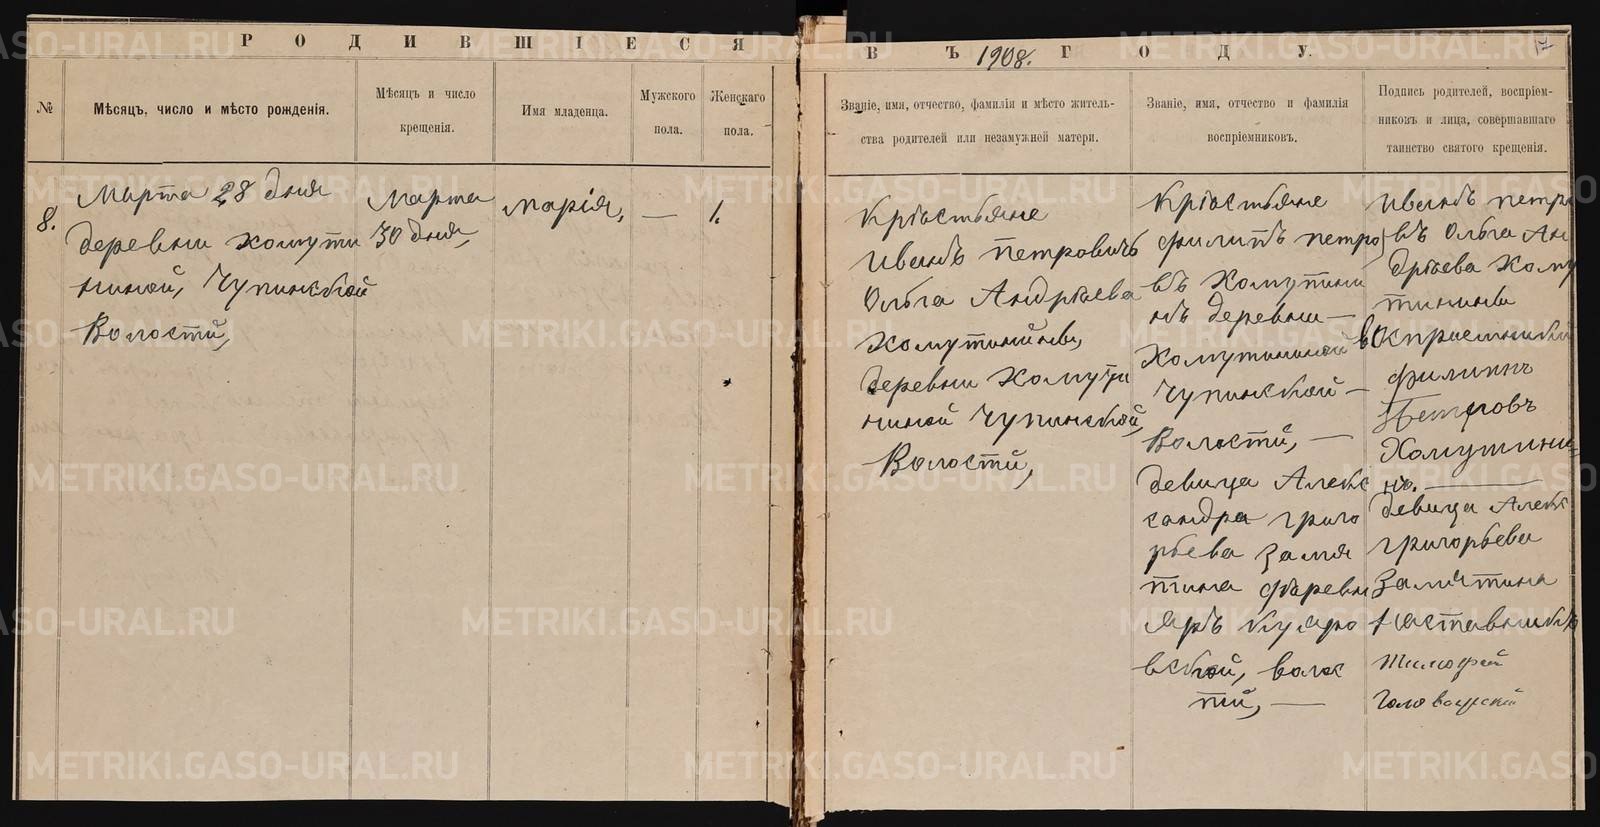 РОДИВШІЕСЯ
ВЪ 1908. ГОДУ.
№
Мѣсяцъ, число и мѣсто рожденія.
Мѣсяцъ и число
крещенія.
Имя младенца.
Мужского
пола.
Женскаго
пола.
Званіе, имя, отчество, фамилія и мѣсто житель-
ства родителей или незамужней матери.
Званіе, имя, отчество и фамилія
воспріемниковъ.
Подпись родителей, воспріем-
никовъ и лица, совершавшаго
таинство святого крещенія.
8.
Марта 28 дня
деревни хомути
ниной, Чупинской
Волости,
Марта
30 дня,
Марія,
—
1.
Крѣстьяне
Иванъ петровичъ
Ольга Андрѣева
хомутинины,
деревни Хомути
ниной Чупинской,
Волости,
Крѣстьяне
филипъ петро
въ Хомутини
нъ деревни —
Хомутининой
Чупинской —
Волости, —
девица Алекс
сандра григо
рьева Замя
тина
Яръ
вской, волос
тий, —
Иванъ петро
въ Ольга Ан
дрѣева Хому
тинины
восприемники
филипъ
Петровъ
Хомутини=
нъ. —
девица Алекс
григорьева
Замятина
Наставникъ
Тимофей